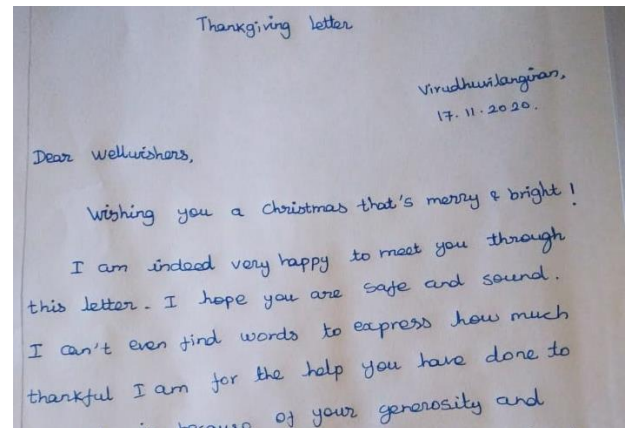 Thankgiving letter
Virudhuvilanginan,
17.11.2020.
Dear Wellwishers,
Wishing you a Christmas that's merry & bright!
I am indeed very happy to meet you through
this letter. I hope you are safe and sound.
I can't even find words to express how much
thankful I am for the help you have done to
because of your generosity and